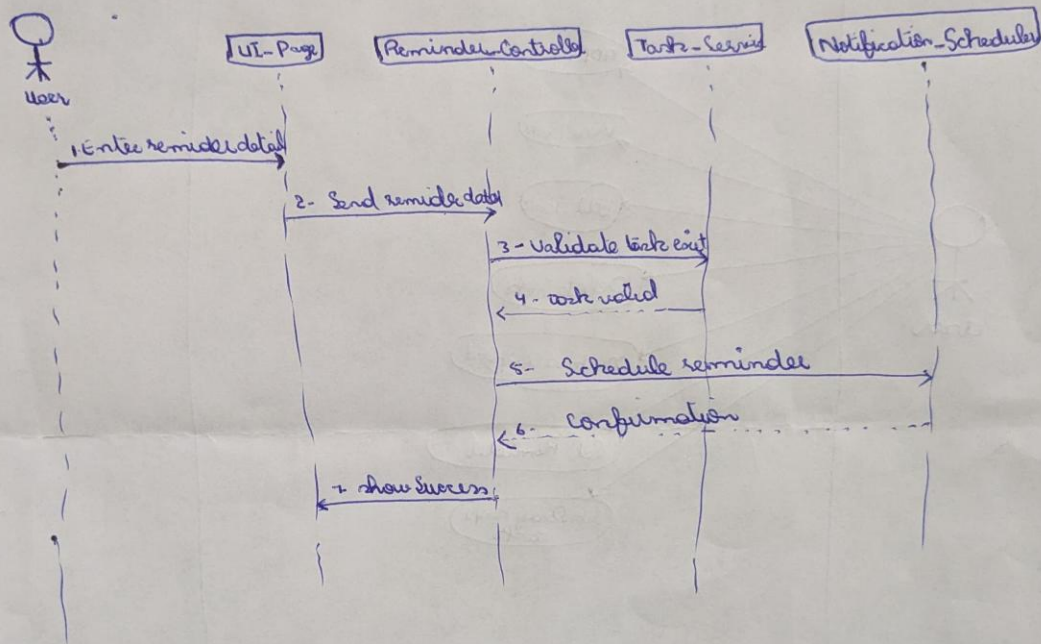 User
UI-Page
Reminder-Controlld
Task-Servic
Notification-Scheduler
1. Enter remider detail
2- Send remider data
3- Validate task exist
4- task valid
5- Schedule reminder
6- Confirmation
7- show Success